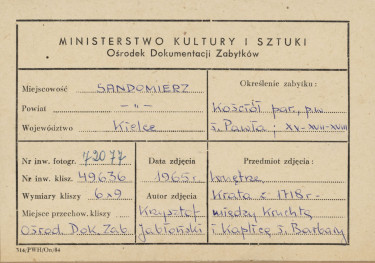 MINISTERSTWO KULTURY I SZTUKI
Ośrodek Dokumentacji Zabytków
Miejscowość SANDOMIERZ
Powiat — „ —
Województwo Kielce
Określenie zabytku:
Kościół par. p.w.
ś. Pawła; XV-XVII-XVIII
Nr inw. fotogr. 72077
Nr inw. klisz. 49636
Wymiary kliszy 6x9
Miejsce przechow. kliszy
Ośrod. Dok. Zab
Data zdjęcia
1965 r.
Autor zdjęcia
Krzysztof
Jabłoński
Przedmiot zdjęcia:
wnętrze
Krata z 1718 r.
między Kruchtą
i Kaplicą ś. Barbary